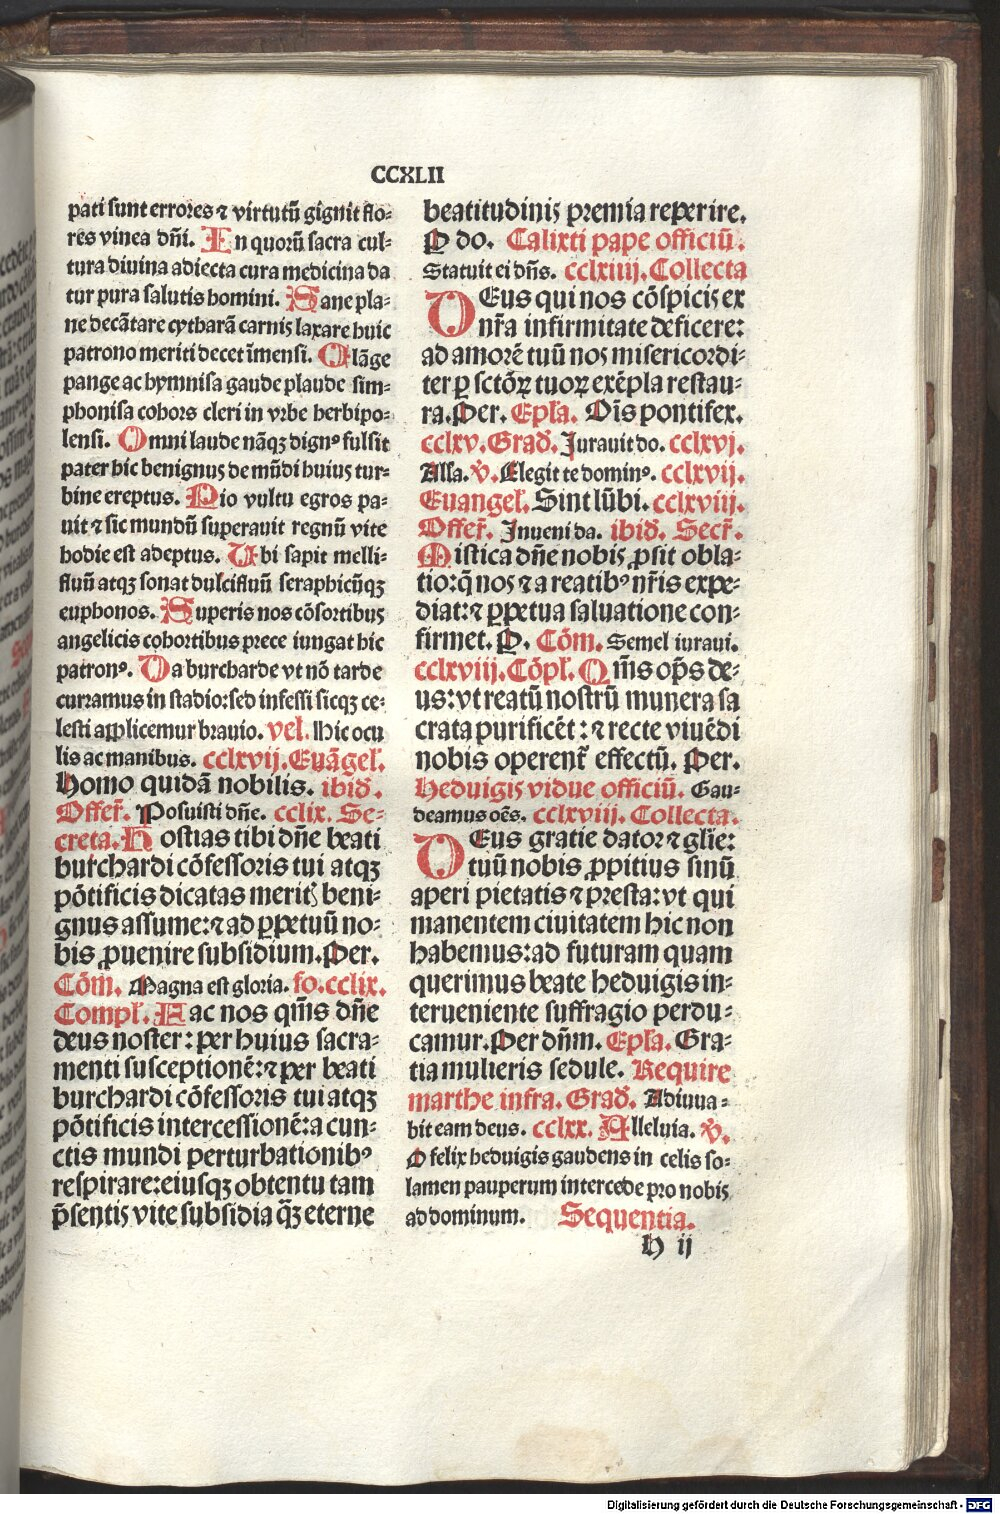 CCXLII
pati sunt errores ⁊ virtutū gignit flo-
res vinea dn̄i. In quorū sacra cul-
tura diuina adiecta cura medicina da
tur pura salutis homini. Sane pla-
ne decātare cytharā carnis laxare huic
patrono meriti decet īmensi. Clāge
pange ac hymnisa gaude plaude sim-
phonisa cohors cleri in vrbe herbipo-
lensi. Omni laude nāqꝫ dignꝰ fulsit
pater hic benignus de mūdi huius tur-
bine ereptus. Pio vultu egros pa-
uit ⁊ sic mundū superauit regnū vite
hodie est adeptus. Ubi sapit melli-
fluū atqꝫ sonat dulcifluū seraphicūqꝫ
euphonos. Superis nos cōsortibus
angelicis cohortibus prece iungat hic
patronꝰ. Da burcharde vt nō tarde
curramus in stadio: sed infessi sicqꝫ ce-
lesti applicemur brauio. vel. Hic ocu
lis ac manibus. cclxvij. Euāgel̄.
Homo quidā nobilis. ibid̄.
Offer̄. Posuisti dn̄e. cclix. Se-
creta. Hostias tibi dn̄e beati
burchardi cōfessoris tui atqꝫ
pōtificis dicatas merit⸝ beni-
gnus assume: ⁊ ad ꝑpetuū no-
bis ꝓuenire subsidium. Per.
Cōm. Magna est gloria. fo. cclix.
Compl̄. Fac nos qm̄s dn̄e
deus noster: per huius sacra-
menti susceptionē: ⁊ per beati
burchardi cōfessoris tui atqꝫ
pōtificis intercessionē: a cun-
ctis mundi perturbationibꝰ
respirare: eiusqꝫ obtentu tam
p̄sentis vite subsidia q̄ꝫ eterne
beatitudinis premia reperire.
P do. Calixti pape officiū.
Statuit ei dn̄s. cclxiiij. Collecta
DEus qui nos cōspicis ex
nr̄a infirmitate deficere:
ad amorē tuū nos misericordi-
ter ꝑ sctōꝝ tuoꝝ exēpla restau-
ra. Per. Epl̄a. Ois pontifex.
cclxv. Grad̄. Jurauit do. cclxvj.
Alla. ℣. Elegit te dominꝰ. cclxvij.
Euangel̄. Sint lūbi. cclxviij.
Offer̄. Jnueni da. ibid̄. Secr̄.
Mistica dn̄e nobis ꝓsit obla-
tio: q̄ nos ⁊ a reatibꝰ nr̄is expe-
diat: ⁊ ꝑpetua saluatione con-
firmet. P. Cōm. Semel iuraui.
cclxviij. Cōpl̄. Qm̄s op̄s de-
us: vt reatū nostrū munera sa
crata purificēt: ⁊ recte viuēdi
nobis operent᷑ effectū. Per.
Heduigis vidue officiū. Gau-
deamus oēs. cclxviij. Collecta.
DEus gratie dator ⁊ glīe:
tuū nobis ꝓpitius sinū
aperi pietatis ⁊ presta: vt qui
manentem ciuitatem hic non
habemus: ad futuram quam
querimus beate heduigis in-
terueniente suffragio perdu-
camur. Per dn̄m. Epl̄a. Gra-
tia mulieris sedule. Require
marthe infra. Grad̄. Adiuua-
bit eam deus. cclxx. Alleluia. ℣.
O felix heduigis gaudens in celis so-
lamen pauperum intercede pro nobis
ad dominum. Sequentia.
H ij
Digitalisierung gefördert durch die Deutsche Forschungsgemeinschaft - DFG